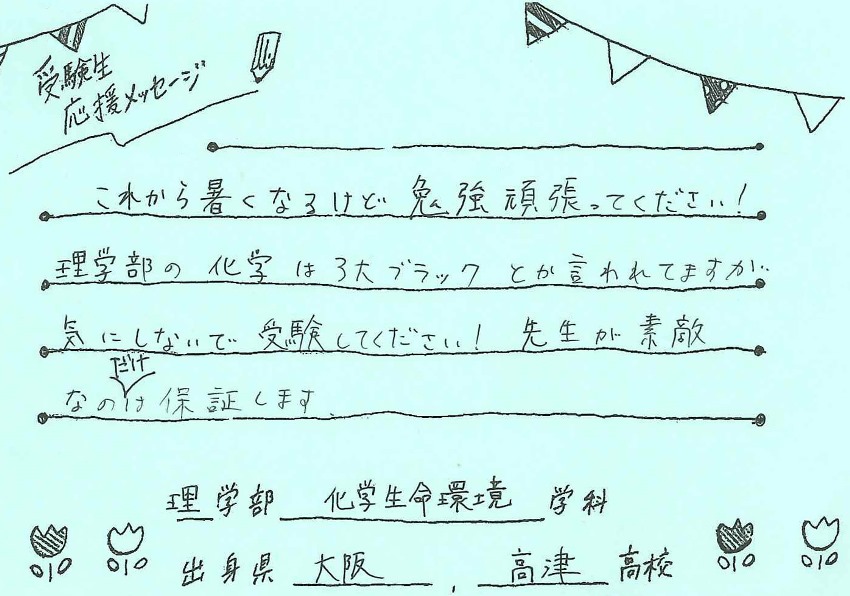 受験生
応援メッセージ
これから暑くなるけど 勉強頑張ってください!
理学部の 化学 は 3大ブラック とか言われてますが
気にしないで 受験してください! 先生が素敵
なのだけは保証します
理学部 化学生命環境 学科
出身県 大阪 , 高津 高校